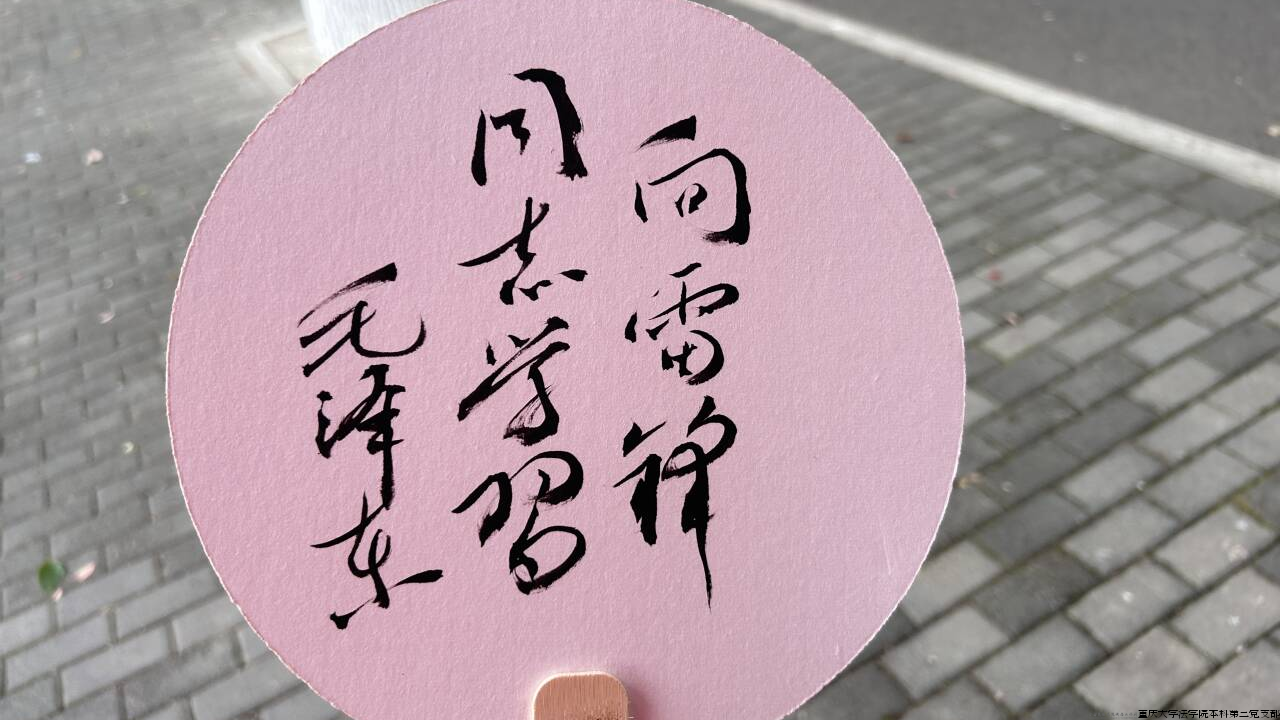 向雷锋
同志学习
毛泽东
重庆大学法学院本科第二党支部